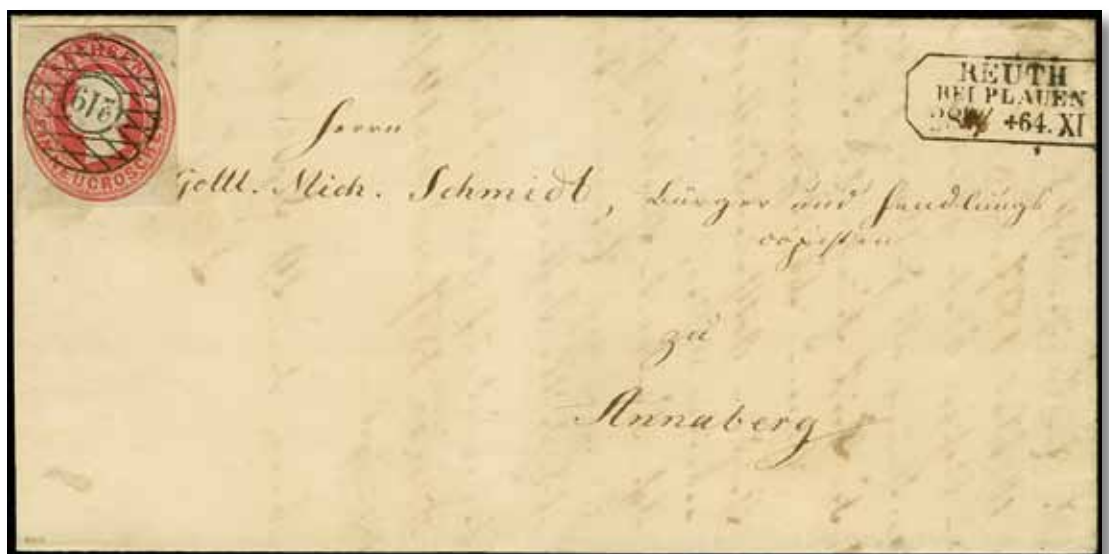 219
REUTH
BEI PLAUEN
28 64. XI
Herrn
Gottl. Mich. Schmidt, Bürger und Handlungs
zu
Annaberg